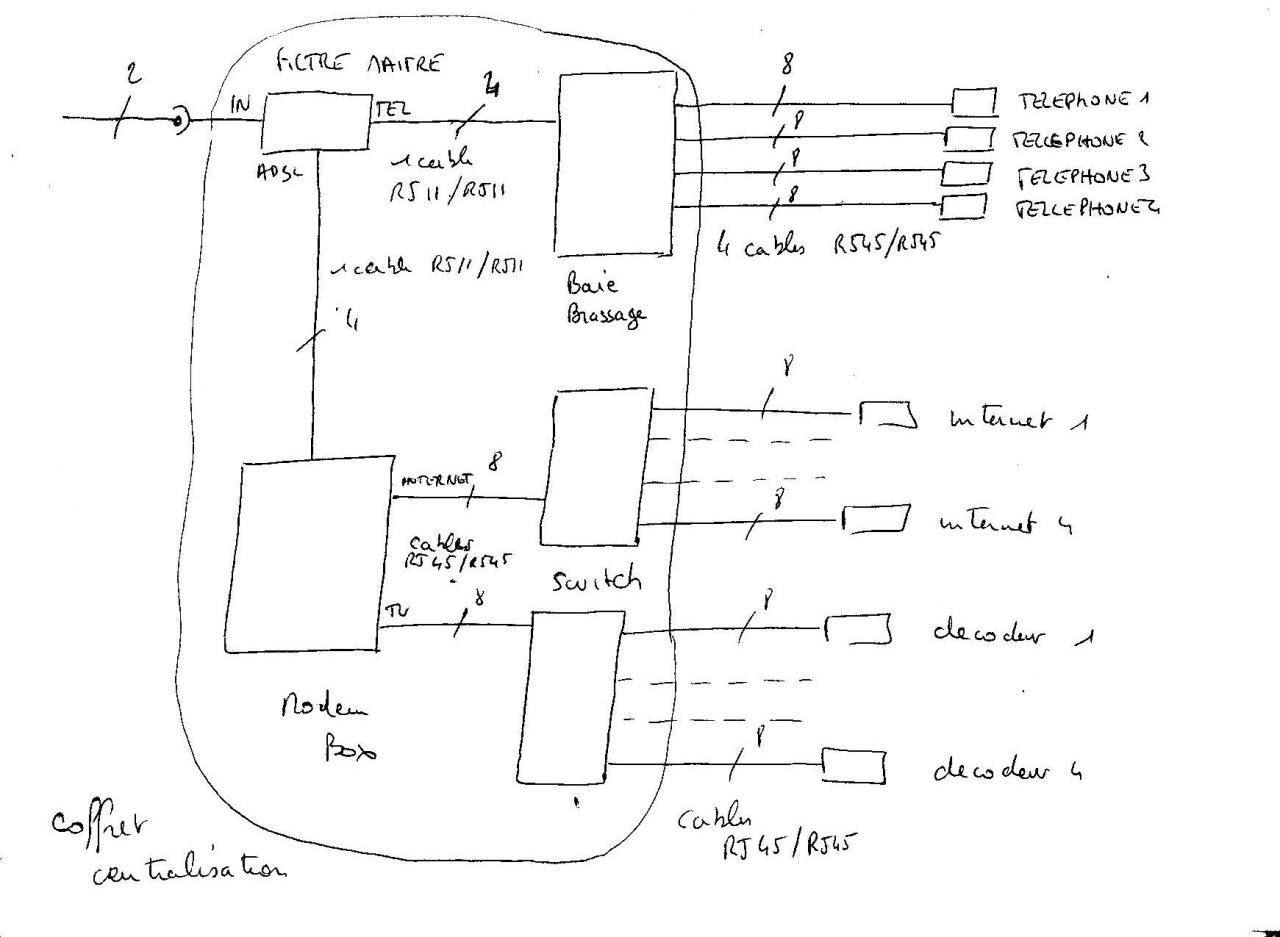 FILTRE MAITRE
2
IN
TEL
4
8
TELEPHONE 1
8
TELLEPHONE 2
8
TELEPHONE 3
8
TELLEPHONE 4
ADSL
1 cable
RJ11/RJ11
4 cables RJ45/RJ45
1 cable RJ11/RJ11
Baie
Brassage
4
8
internet 1
INTERNET
8
8
internet 4
cables
RJ45/RJ45
Switch
TV
8
8
decodeur 1
Modem
Box
8
decodeur 4
cables
RJ45/RJ45
coffret
centralisation